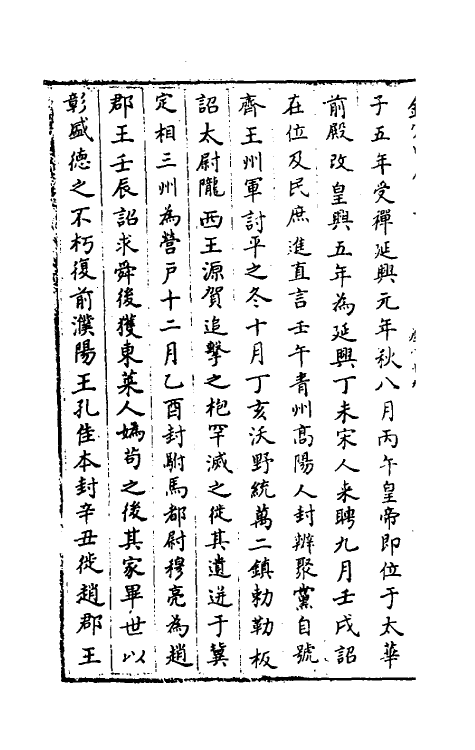 子五年受禪延興元年秋八月丙午皇帝即位于太華
前殿改皇興五年為延興丁未宋人来聘九月壬戌詔
在位及民庶進直言壬午青州髙陽人封辨聚黨自號
齊王州軍討平之冬十月丁亥沃野統萬二鎮勅勒板
詔太尉隴西王源賀追擊之枹罕滅之徙其遺迸于冀
定相三州為營戸十二月乙酉封駙馬都尉穆亮為趙
郡王壬辰詔求舜後獲東萊人媯苟之後其家畢世以
彰盛德之不朽復前濮陽王孔雀本封辛丑徙趙郡王